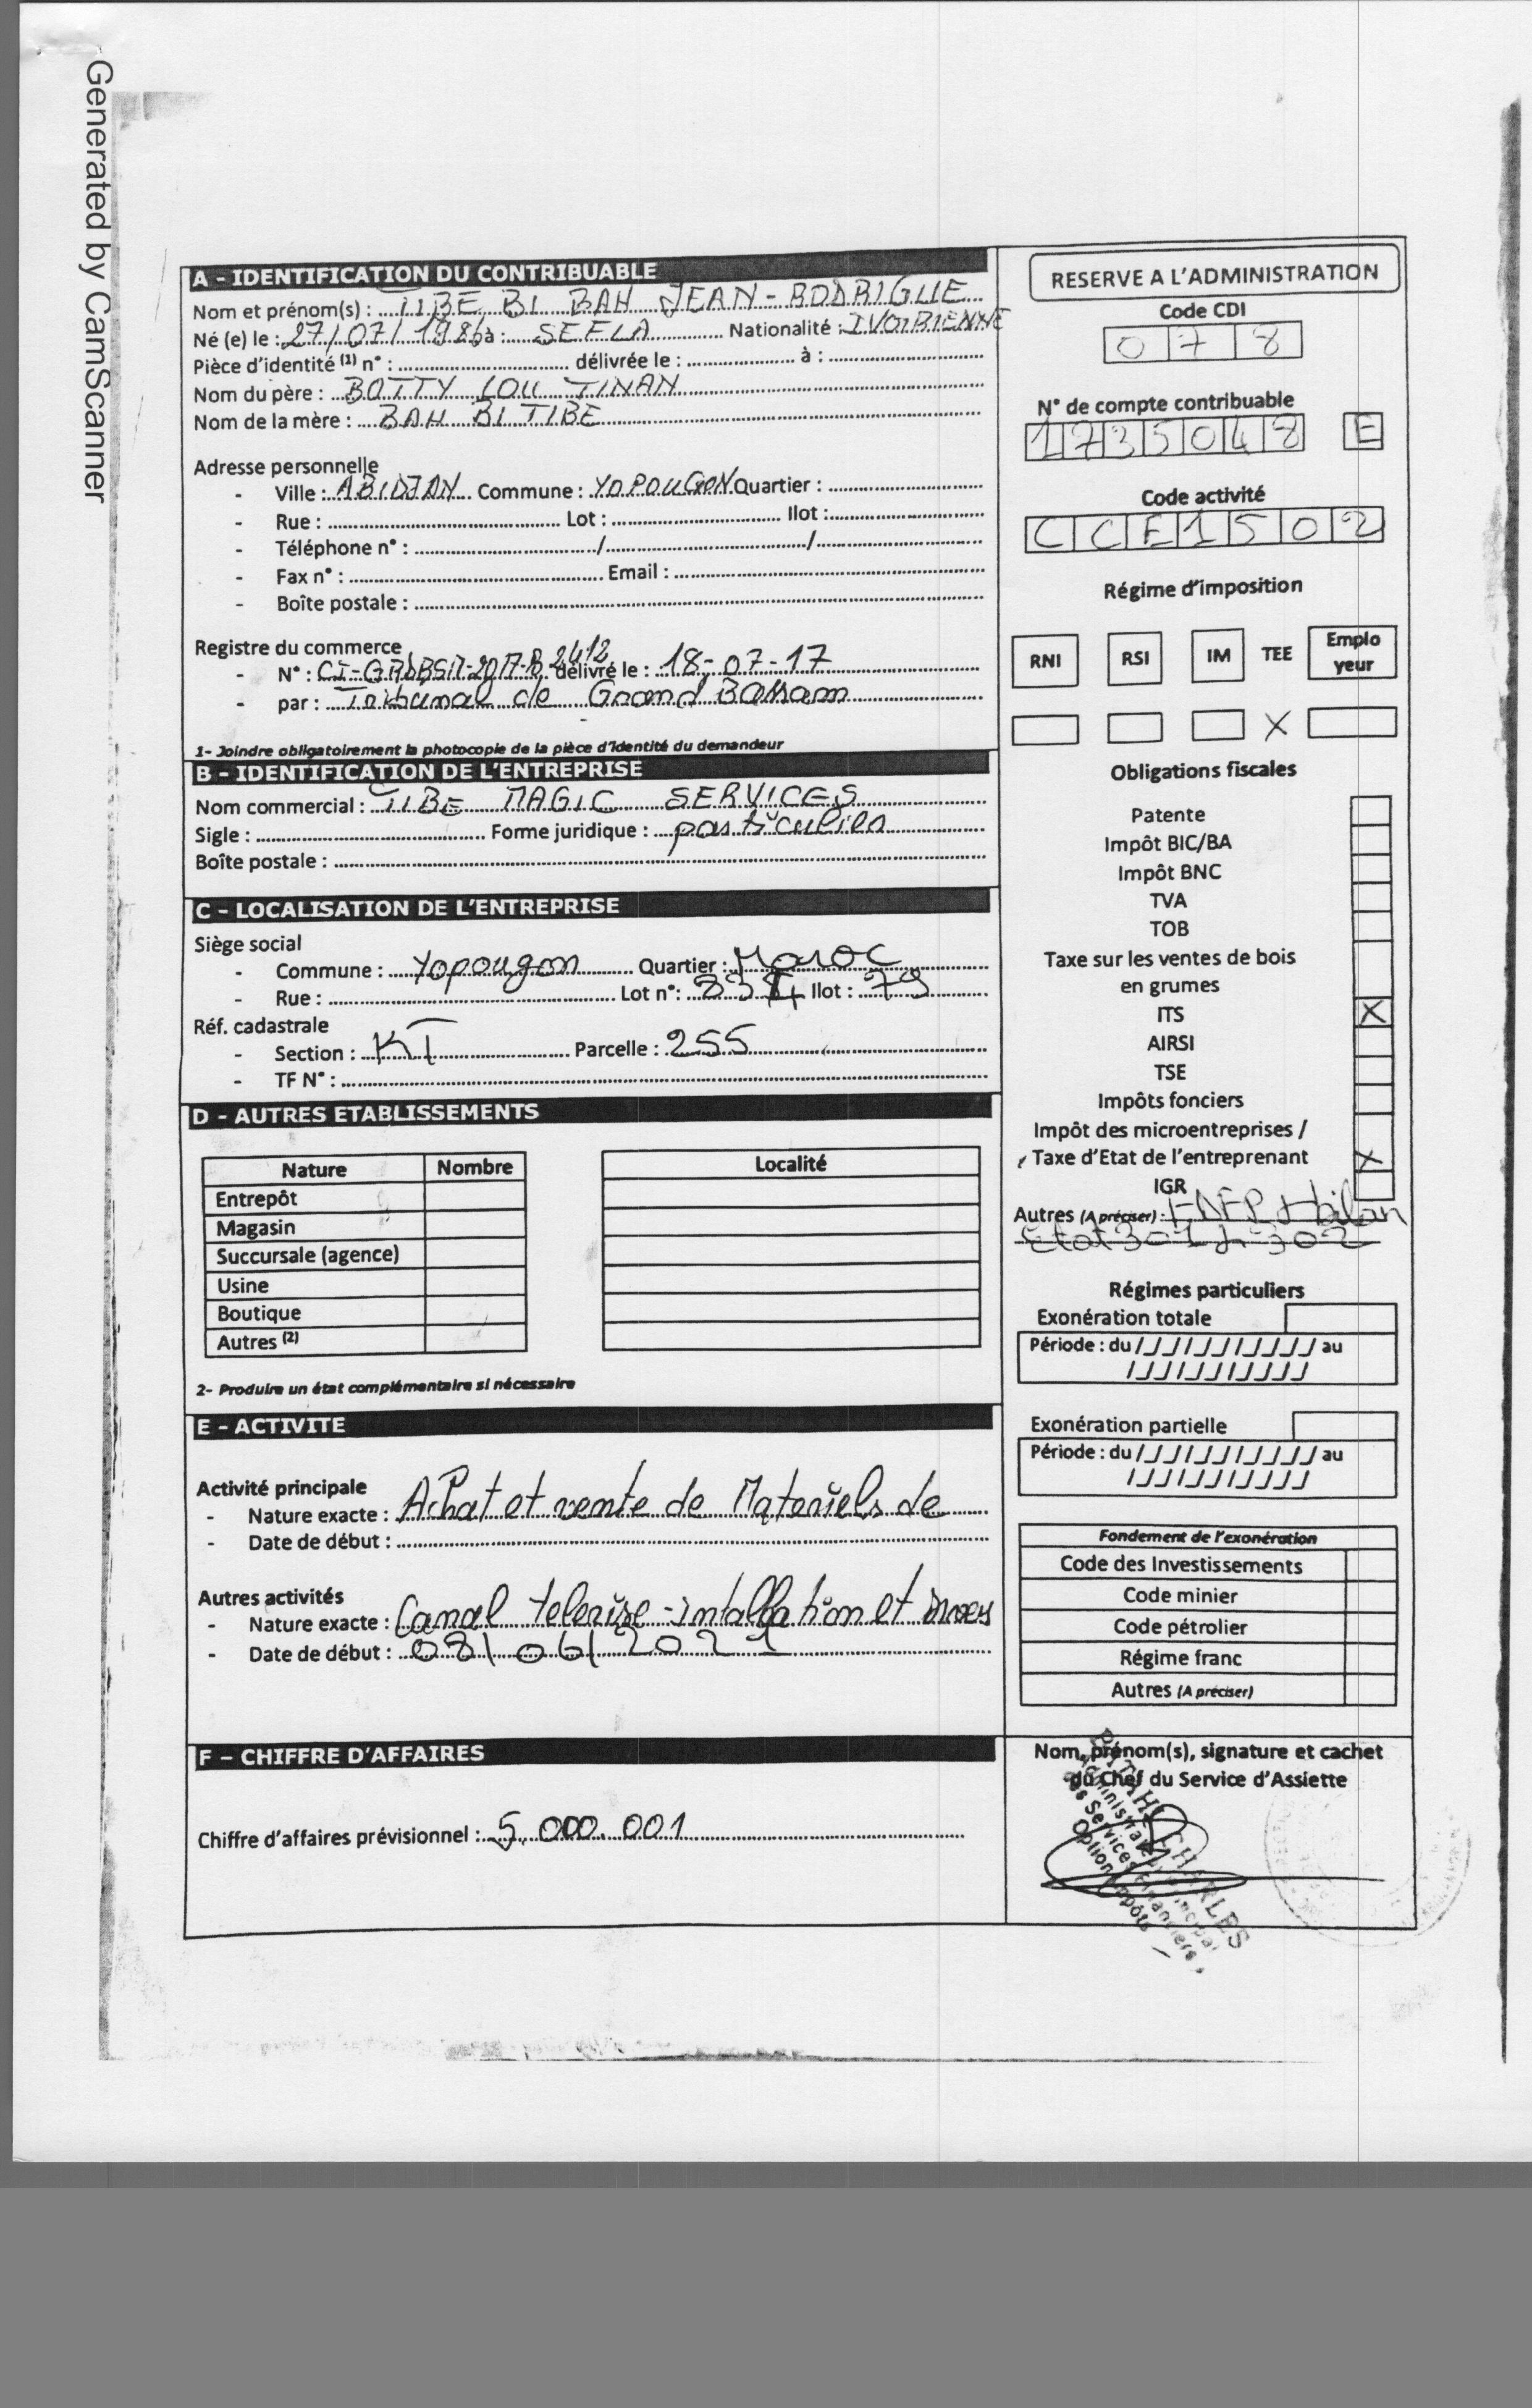 Generated by CamScanner
A - IDENTIFICATION DU CONTRIBUABLE
Nom et prénom(s) : TIBE BI BAH JEAN-RODRIGUE
Né (e) le : 27/07/1986 à : SEFLA Nationalité : IVOIRIENNE
Pièce d'identité (1) n° : délivrée le : à :
Nom du père : BOTTY LOU TINAN
Nom de la mère : BAH BI TIBE
Adresse personnelle
- Ville : ABIDJAN Commune : YOPOUGON Quartier :
- Rue : Lot : Ilot :
- Téléphone n° : / /
- Fax n° : Email :
- Boîte postale :
Registre du commerce
- N° : délivré le : 18-07-17
- par : Tribunal de Grand Bassam
1- Joindre obligatoirement la photocopie de la pièce d'identité du demandeur
B - IDENTIFICATION DE L'ENTREPRISE
Nom commercial : TIBE MAGIC SERVICES
Sigle : Forme juridique : particulier
Boîte postale :
C - LOCALISATION DE L'ENTREPRISE
Siège social
- Commune : Yopougon Quartier : Maroc
- Rue : Lot n°: Ilot : 79
Réf. cadastrale
- Section : KT Parcelle : 255
- TF N° :
D - AUTRES ETABLISSEMENTS
Nature Nombre Localité
Entrepôt
Magasin
Succursale (agence)
Usine
Boutique
Autres (2)
2- Produire un état complémentaire si nécessaire
E - ACTIVITE
Activité principale
- Nature exacte : Achat et vente de Materiels de
- Date de début :
Autres activités
- Nature exacte : Canal telerise - intallation et
- Date de début : 08/06/2021
F – CHIFFRE D'AFFAIRES
Chiffre d'affaires prévisionnel : 5.000.001
RESERVE A L'ADMINISTRATION
Code CDI
0 7 8
N° de compte contribuable
1 7 3 5 0 4 8 E
Code activité
C C E 1 5 0 2
Régime d'imposition
RNI RSI IM TEE Emplo
yeur
X
Obligations fiscales
Patente
Impôt BIC/BA
Impôt BNC
TVA
TOB
Taxe sur les ventes de bois
en grumes
ITS X
AIRSI
TSE
Impôts fonciers
Impôt des microentreprises /
Taxe d'Etat de l'entreprenant X
IGR
Autres (A préciser) : bilan
Etat 301 302
Régimes particuliers
Exonération totale
Période : du /_/_/_/_/_/_/_/_/_/_/ au
/_/_/_/_/_/_/_/_/_/_/
Exonération partielle
Période : du /_/_/_/_/_/_/_/_/_/_/ au
/_/_/_/_/_/_/_/_/_/_/
Fondement de l'exonération
Code des Investissements
Code minier
Code pétrolier
Régime franc
Autres (A préciser)
Nom, prénom(s), signature et cachet
du Chef du Service d'Assiette
CHARLES
Administrateur Principal
des Services Financiers
Option Impôts